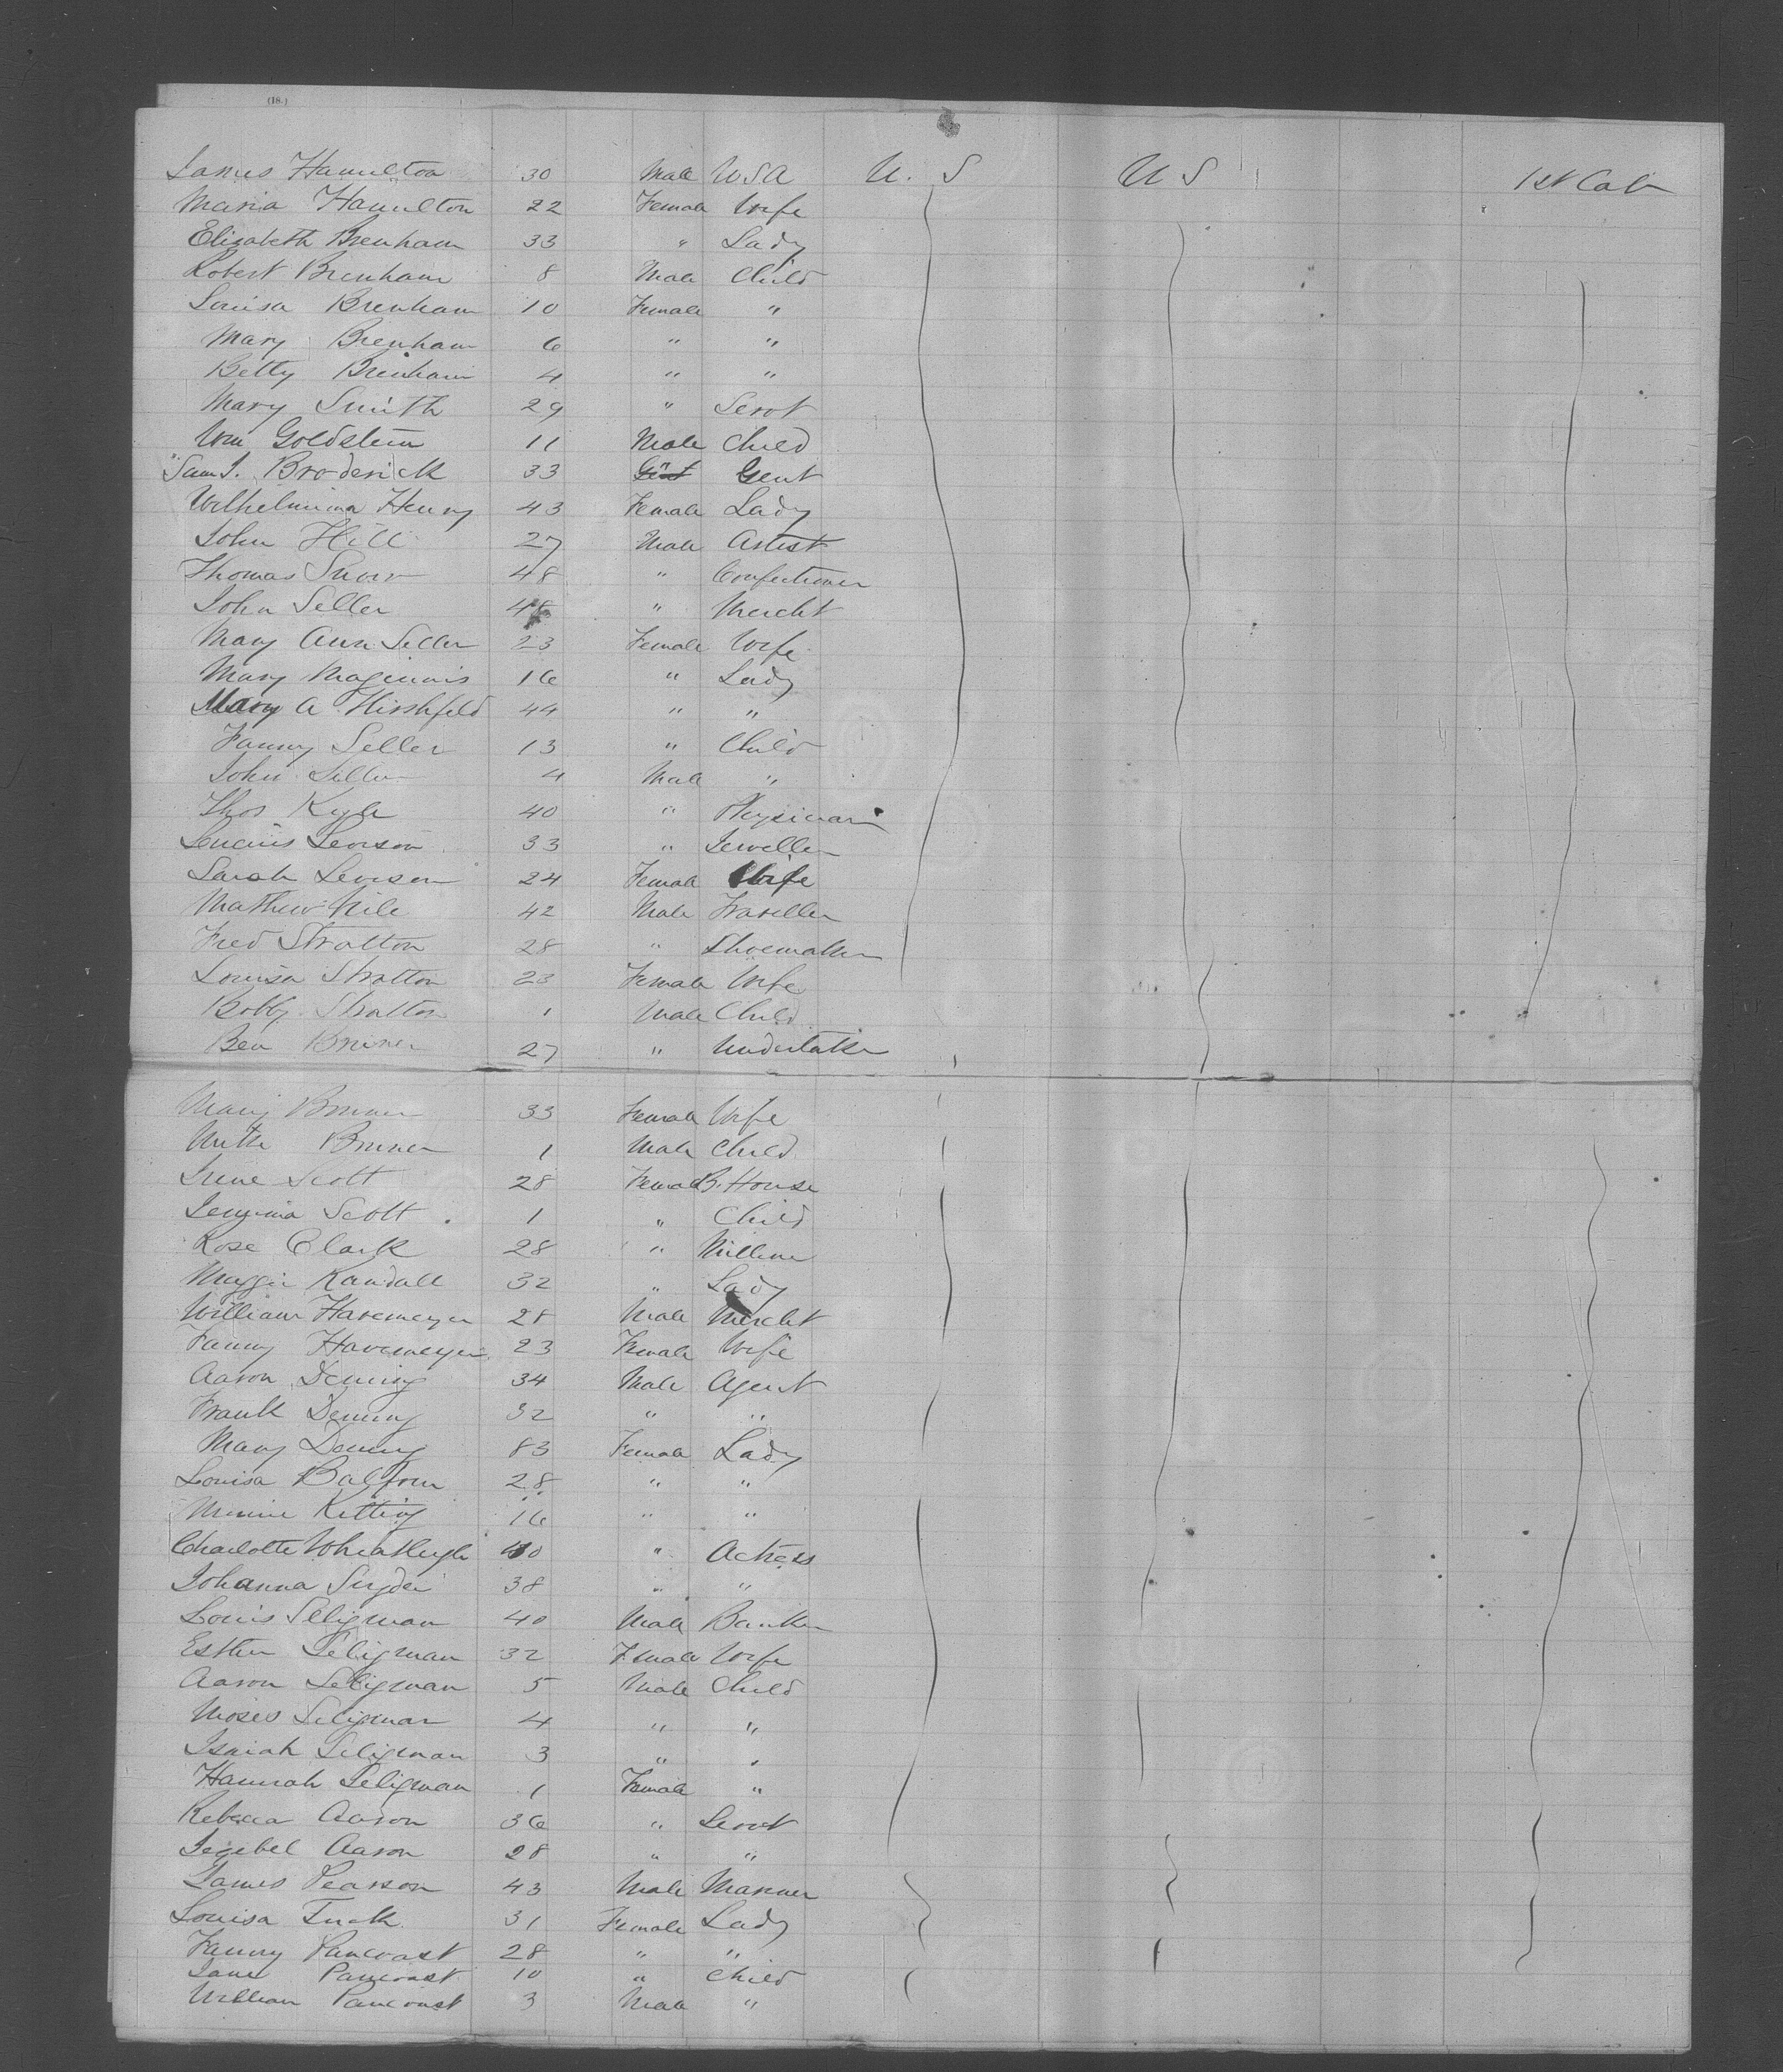 (18.)
James Hamilton 30 Male USA U. S U S 1st Cab
Maria Hamilton 22 Female Wife
Elizabeth Brenham 33 " Lady
Robert Brenham 8 Male Child
Louisa Brenham 10 Female "
Mary Brenham 6 " "
Betty Brenham 4 " "
Mary Smith 29 " Servt
Wm Goldstein 11 Male Child
Saml. Broderick 33 Gent
Wilhelmina Henry 43 Female Lady
John Hill 27 Male Artist
Thomas Snow 48 " Confectioner
John Seller 48 " Mercht
Mary Ann Seller 23 Female Wife
Mary Maginnis 16 " Lady
Mary A Hirshfeld 44 " "
Fanny Seller 13 " Child
John Seller 4 Male "
Thos Kyle 40 " Physician
Levison 33 " Jeweller
Sarah Levison 24 Female Wife
Mathew Nile 42 Male Traveller
Fred Stratton 28 " Shoemaker
Louisa Stratton 23 Female Wife
Bobby Stratton 1 Male Child
Ben Bruner 27 " Undertaker
Mary Bruner 33 Female Wife
Bruner 1 Male Child
Irene Scott 28 Female B. House
Jemima Scott 1 " Child
Rose Clark 28 " Milliner
Maggie Randall 32 " Lady
William Havemeyer 28 Male Mercht
Fanny Havemeyer 23 Female Wife
Aaron Deming 34 Male Agent
Frank Deming 32 " "
Mary Deming 83 Female Lady
Louisa Balfour 28 " "
Minnie Ketting 16 " "
Charlotte Wheatleigh 40 " Actress
Johanna 38 " "
Louis Seligman 40 Male Banker
Esther Seligman 32 Female Wife
Aaron Seligman 5 Male Child
Moses Seligman 4 " "
Isaiah Seligman 3 " "
Hannah Seligman 1 Female "
Rebecca Aaron 36 " Servt
Jezebel Aaron 28 " "
James Pearson 43 Male Mariner
Louisa Tuck 31 Female Lady
Fanny Pancoast 28 " "
Jane Pancoast 10 " Child
William Pancoast 3 Male "